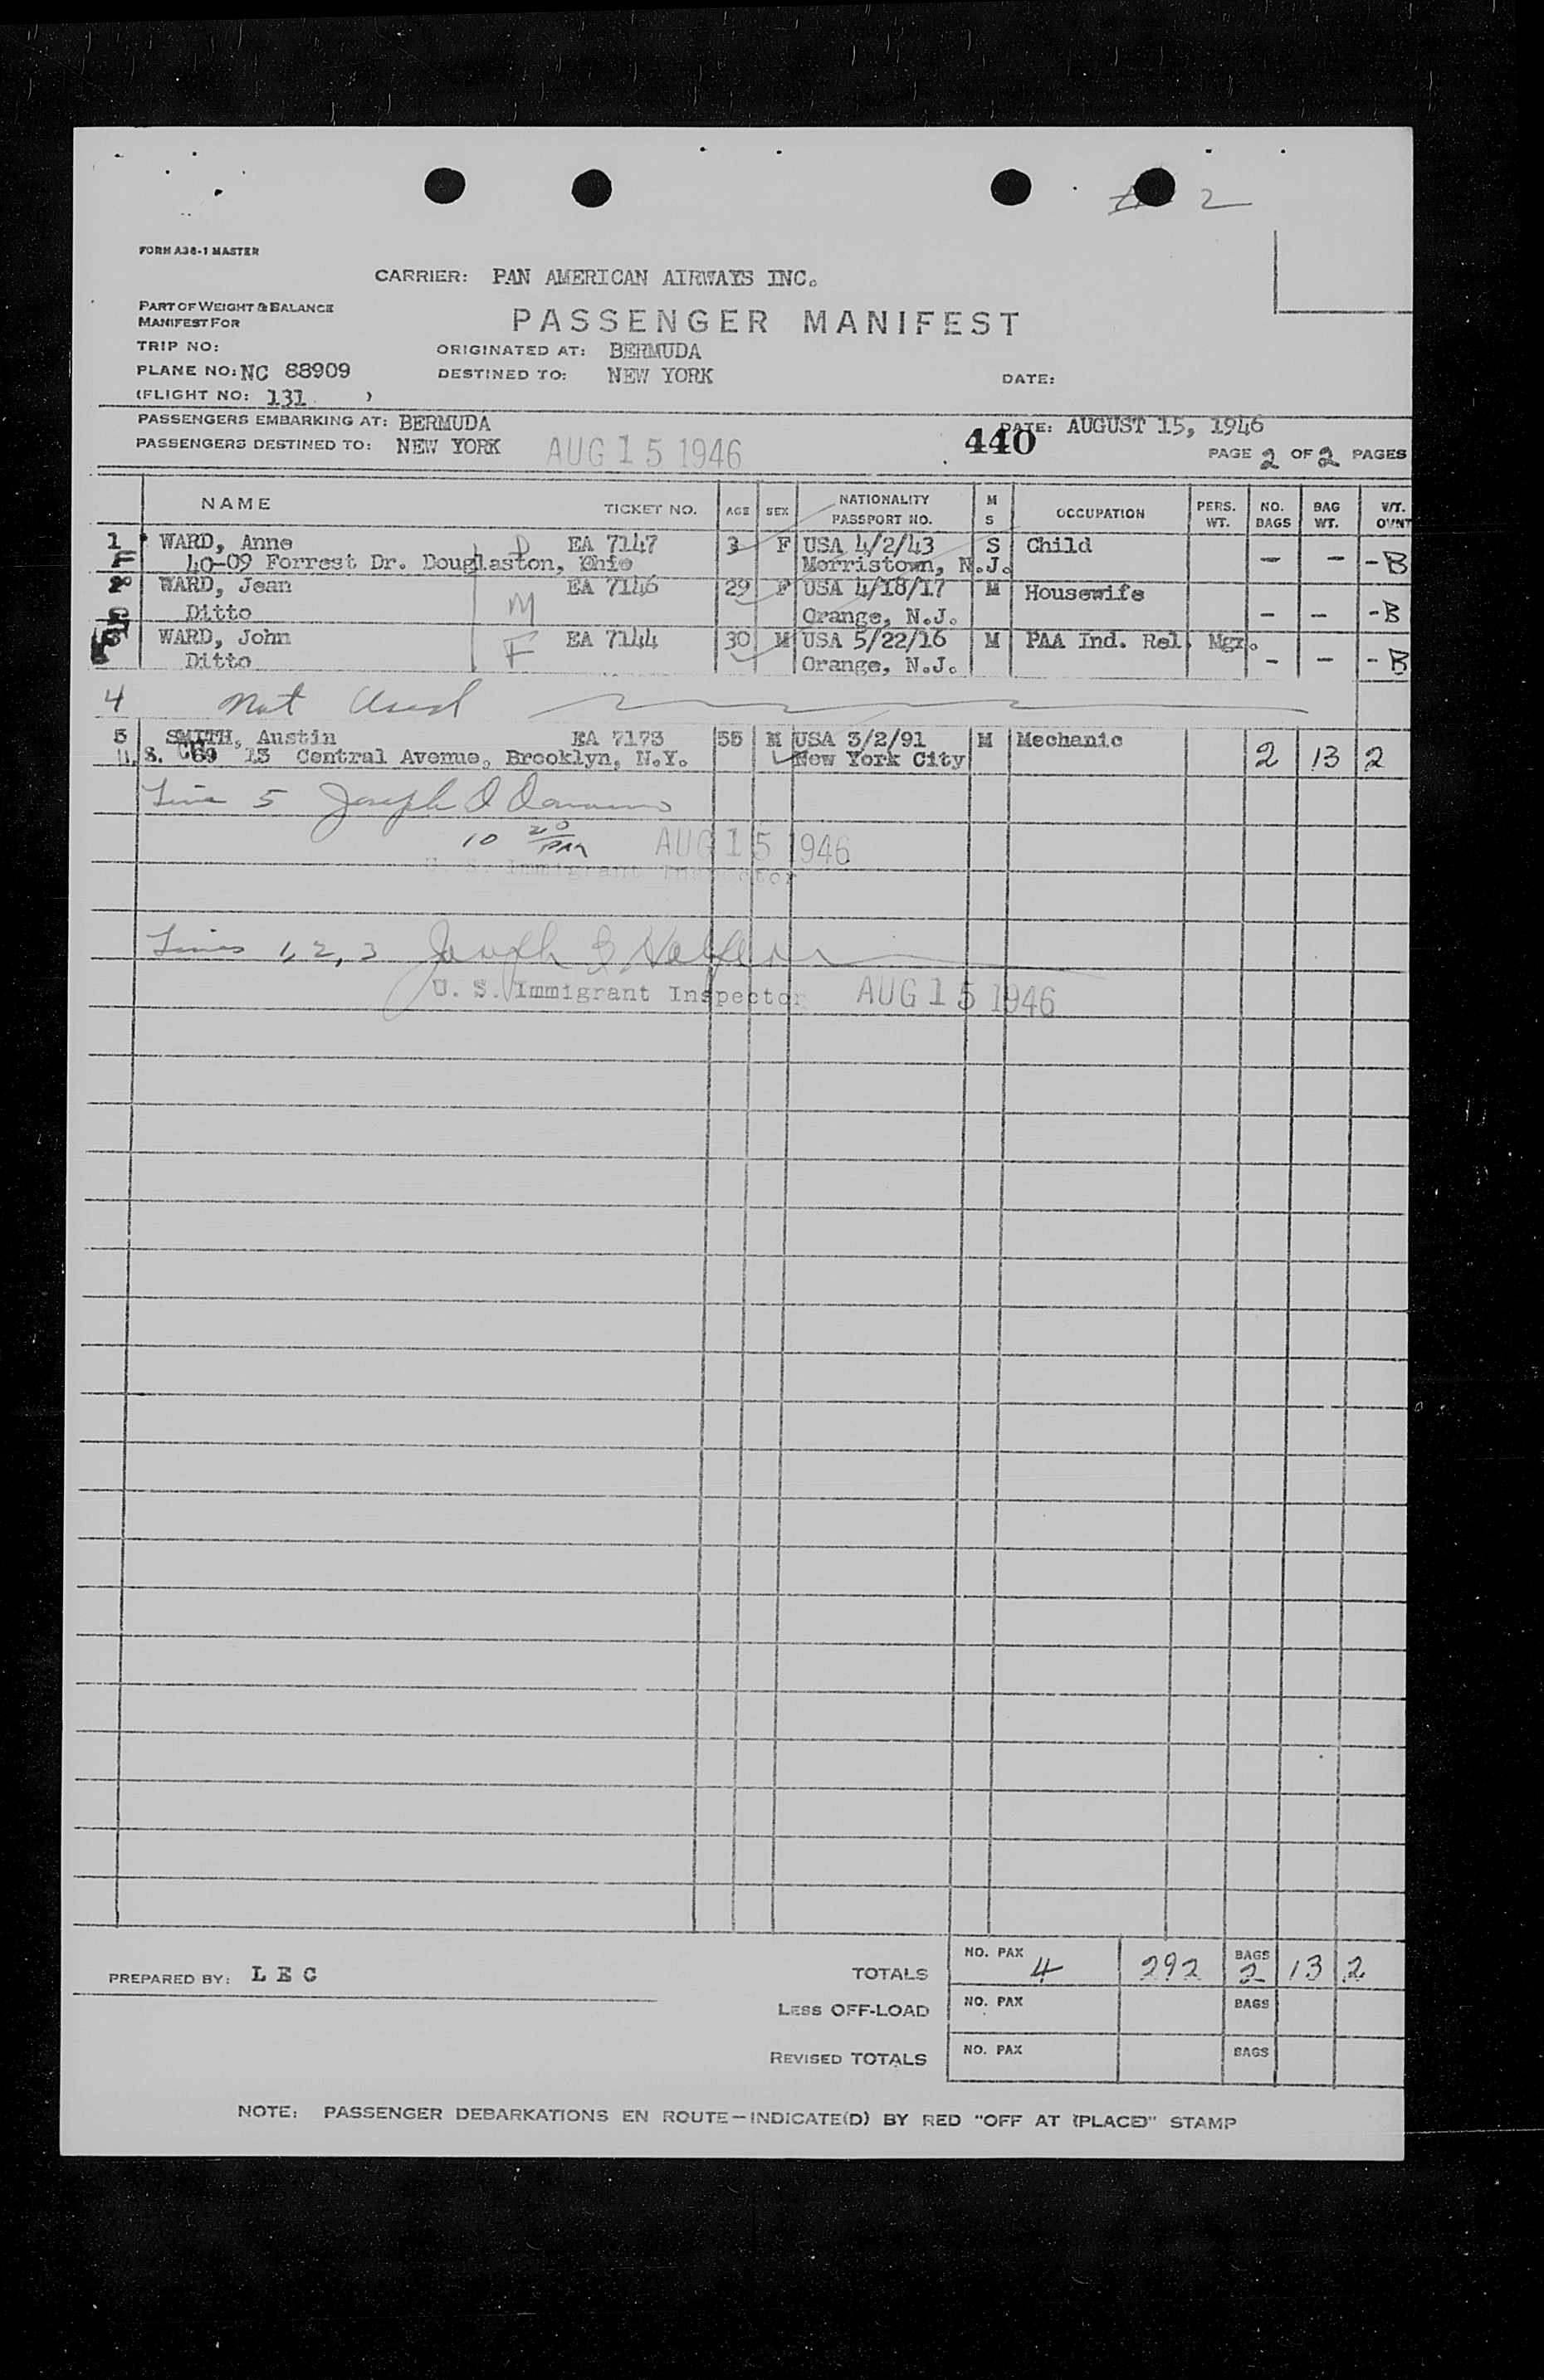 # 2
FORM A36-1 MASTER
CARRIER: PAN AMERICAN AIRWAYS INC.
PART OF WEIGHT & BALANCE
MANIFEST FOR
PASSENGER MANIFEST
TRIP NO:
ORIGINATED AT: BERMUDA
PLANE NO: NC 88909
DESTINED TO: NEW YORK
DATE:
(FLIGHT NO: 131 )
PASSENGERS EMBARKING AT: BERMUDA
DATE: AUGUST 15, 1946
PASSENGERS DESTINED TO: NEW YORK
AUG 15 1946
440
PAGE 2 OF 2 PAGES
NAME TICKET NO. AGE SEX NATIONALITY PASSPORT NO. M S OCCUPATION PERS. WT. NO. BAGS BAG WT. WT. OVNT
1 WARD, Anne D EA 7147 3 F USA 4/2/43 S Child
40-09 Forrest Dr. Douglaston, Ohio Morristown, N.J. - - - B
WARD, Jean M EA 7146 29 F USA 4/18/17 M Housewife
Ditto Orange, N.J. - - - B
WARD, John F EA 7144 30 M USA 5/22/16 M PAA Ind. Rel. Mgr.
Ditto Orange, N.J. - - - B
4 Not Used
5 SMITH, Austin EA 7173 55 M USA 3/2/91 M Mechanic
69 13 Central Avenue, Brooklyn, N.Y. New York City 2 13 2
Line 5 Joseph
10 20 PM AUG 15 1946
U. S. Immigrant Inspector
Lines 1, 2, 3 Joseph
U. S. Immigrant Inspector AUG 15 1946
PREPARED BY: L E C
TOTALS NO. PAX 4 292 BAGS 2 13 2
LESS OFF-LOAD NO. PAX BAGS
REVISED TOTALS NO. PAX BAGS
NOTE: PASSENGER DEBARKATIONS EN ROUTE—INDICATE(D) BY RED "OFF AT (PLACE)" STAMP